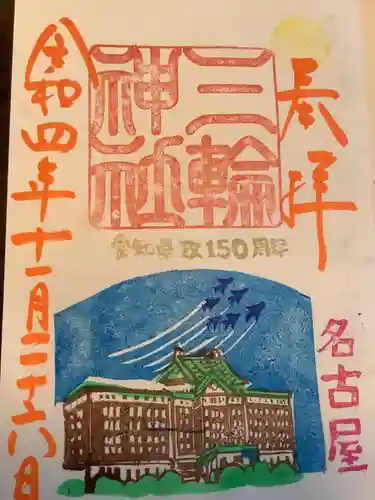 奉拝
三輪
神社
愛知県政150周年
名古屋
令和四年十一月二十八日